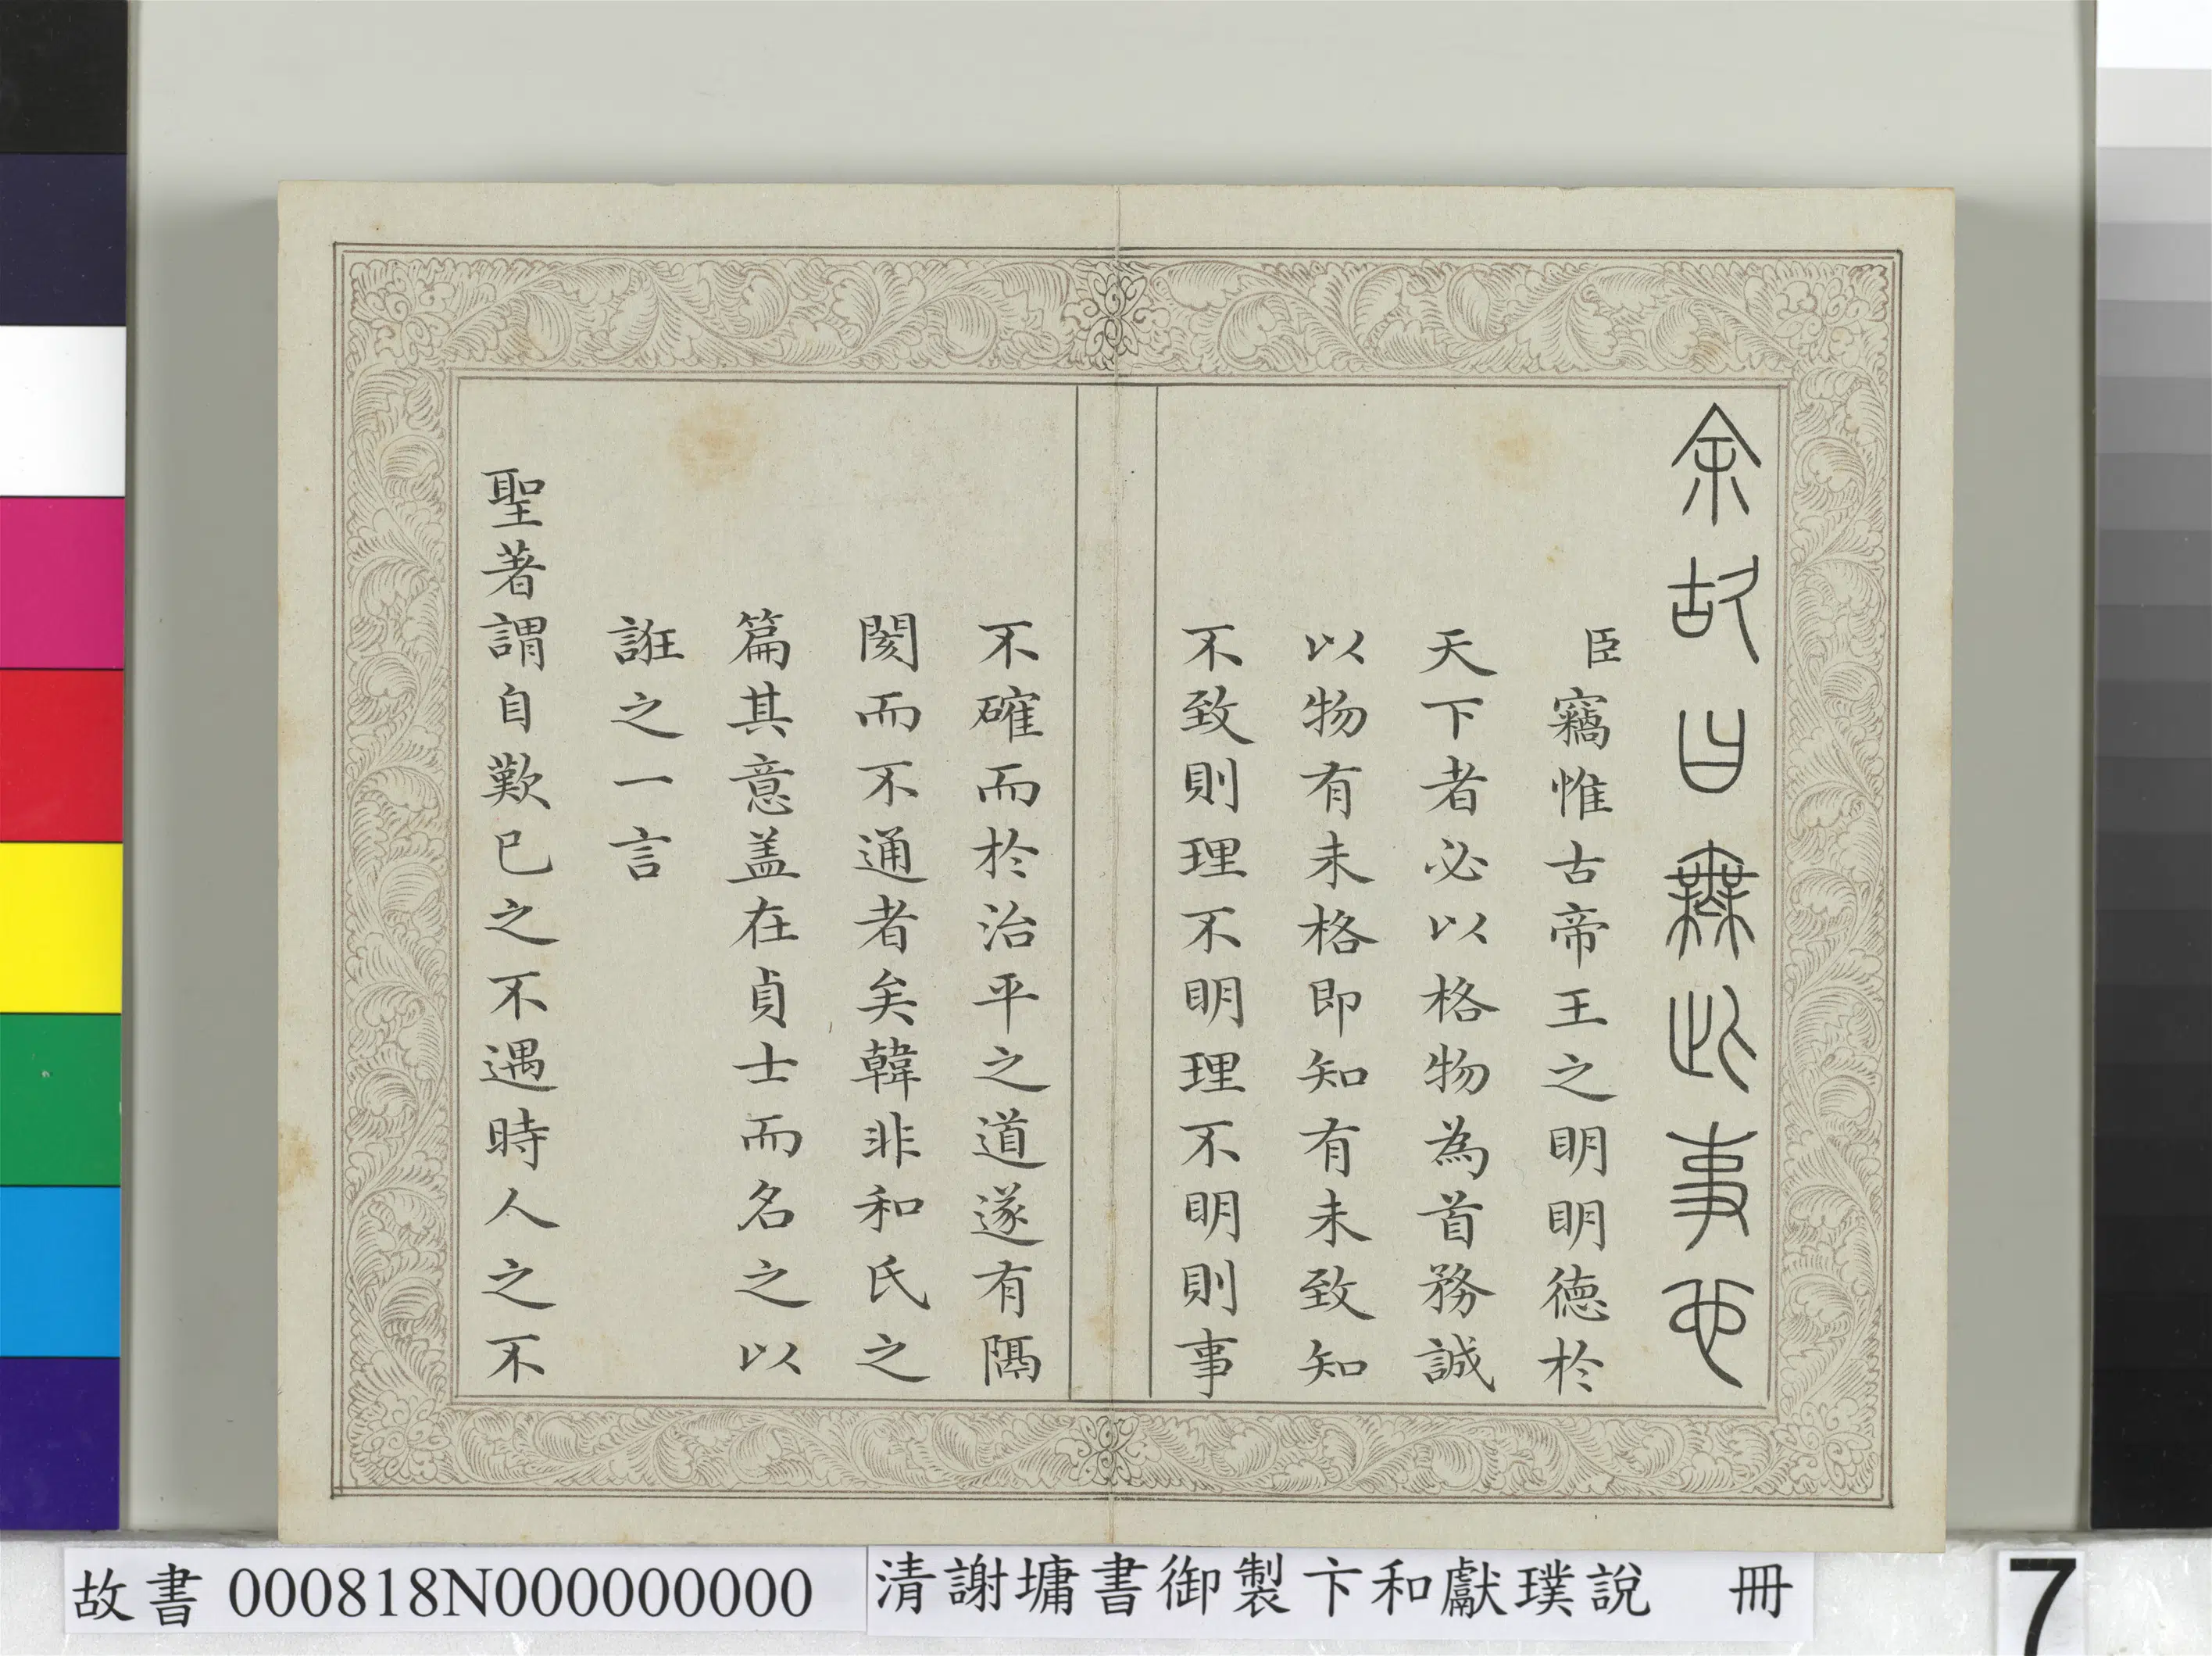 余故曰無此事也
臣竊惟古帝王之明明德於
天下者必以格物為首務誠
以物有未格即知有未致知
不致則理不明理不明則事
不確而於治平之道遂有隔
閡而不通者矣韓非和氏之
篇其意盖在貞士而名之以
誑之一言
聖著謂自歎已之不遇時人之不
故書 000818N000000000
清謝墉書御製卞和獻璞說 冊
7